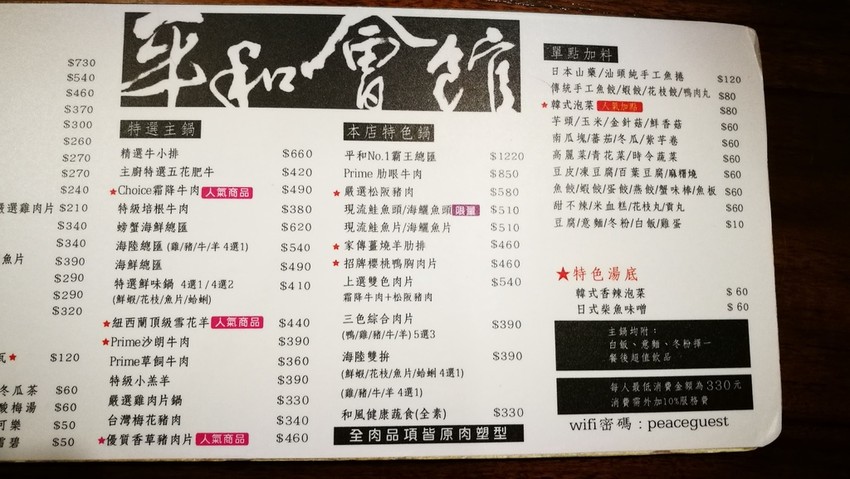 $730
$540
$460
$370
$300
$260
$270
$270
$240
嚴選雞肉片 $210
$340
$340
魚片 $390
$290
$290
$320
★ $120
冬瓜茶 $60
酸梅湯 $60
可樂 $50
雪碧 $50
平和會館
特選主鍋
精選牛小排 $660
主廚特選五花肥牛 $420
★Choice霜降牛肉 人氣商品 $490
特級培根牛肉 $380
螃蟹海鮮總匯 $620
海陸總匯 (雞/豬/牛/羊 4選1) $540
海鮮總匯 $490
特選鮮味鍋 4選1/4選2 $410
(鮮蝦/花枝/魚片/蛤蜊)
★紐西蘭頂級雪花羊 人氣商品 $440
★Prime沙朗牛肉 $390
Prime草飼牛肉 $360
特級小羔羊 $390
嚴選雞肉片鍋 $330
台灣梅花豬肉 $340
★優質香草豬肉片 人氣商品 $460
本店特色鍋
平和No.1霸王總匯 $1220
Prime 肋眼牛肉 $850
★嚴選松阪豬肉 $580
現流鮭魚頭/海鱺魚頭 限量 $510
現流鮭魚片/海鱺魚片 $510
★家傳薑燒羊肋排 $460
★招牌櫻桃鴨胸肉片 $460
上選雙色肉片 $540
霜降牛肉+松阪豬肉
三色綜合肉片 $390
(鴨/雞/豬/牛/羊) 5選3
海陸雙拚 $390
(鮮蝦/花枝/魚片/蛤蜊 4選1)
(雞/豬/牛/羊 4選1)
和風健康蔬食(全素) $330
全肉品項皆原肉塑型
單點加料
日本山藥/汕頭純手工魚捲 $120
傳統手工魚餃/蝦餃/花枝餃/鴨肉丸 $80
★韓式泡菜 人氣加點 $80
芋頭/玉米/金針菇/鮮香菇 $60
南瓜塊/蕃茄/冬瓜/紫芋卷 $60
高麗菜/青花菜/時令蔬菜 $60
豆皮/凍豆腐/百葉豆腐/麻糬燒 $60
魚餃/蝦餃/蛋餃/燕餃/蟹味棒/魚板 $60
甜不辣/米血糕/花枝丸/貢丸 $60
豆腐/意麵/冬粉/白飯/雞蛋 $10
★特色湯底
韓式香辣泡菜 $60
日式柴魚味噌 $60
主鍋均附:
白飯、意麵、冬粉擇一
餐後超值飲品
每人最低消費金額為330元
消費需外加10%服務費
wifi密碼:peaceguest